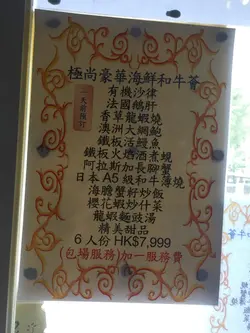 極尚豪華海鮮和牛薈
有機沙律
法國鵝肝
香草龍蝦燒
澳洲大網鮑
鐵板活鱔魚
鐵板火焰酒煮蜆
阿拉斯加長腳蟹
日本A5級和牛薄燒
海膽蟹籽炒飯
櫻花蝦炒什菜
龍蝦麵豉湯
精美甜品
6人份HK$7,999
(包場服務)加一服務費